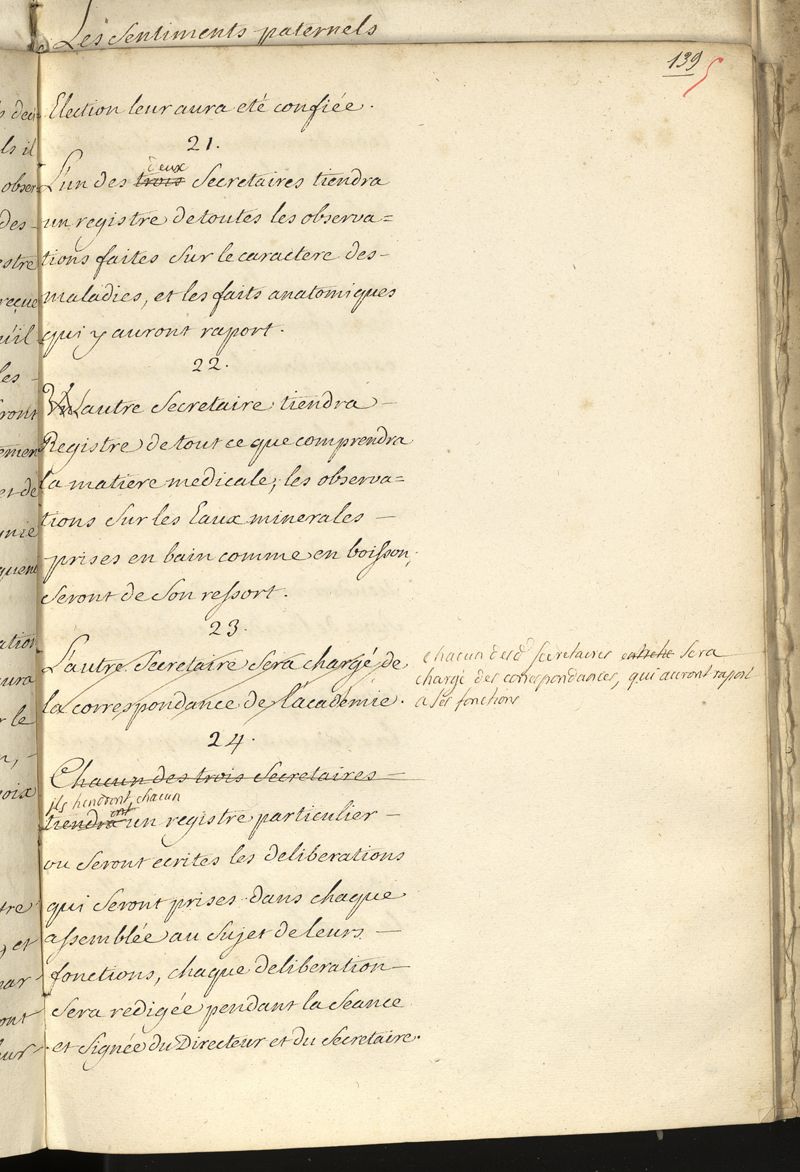 Les sentiments paternels
139
5
Election leur aura eté confiée.
21.
deux
L'un des trois Secretaires tiendra
un registre de toutes les observa=
tions faites sur le caractere des-
maladies, et les faits anatomiques
qui y auront raport.
22.
L'autre Secretaire tiendra -
Registre de tout ce que comprendra
la matiere medicale; les observa=
tions sur les Eaux minerales -
prises en bain comme en boisson,
seront de son ressort.
23.
L'autre Secretaire sera chargé de
la correspondance de l'academie.
chacun desd secretaires sera
chargé des correspondances, qui auront raport
a ses fonctions
24.
Chacun des trois Secretaires -
ils tiendront chacun
ont
tiendra un registre particulier -
ou seront ecrites les deliberations
qui seront prises dans chaque
assemblée au sujet de leurs -
fonctions, chaque deliberation -
sera redigée pendant la seance
et signée du Directeur et du Secretaire.